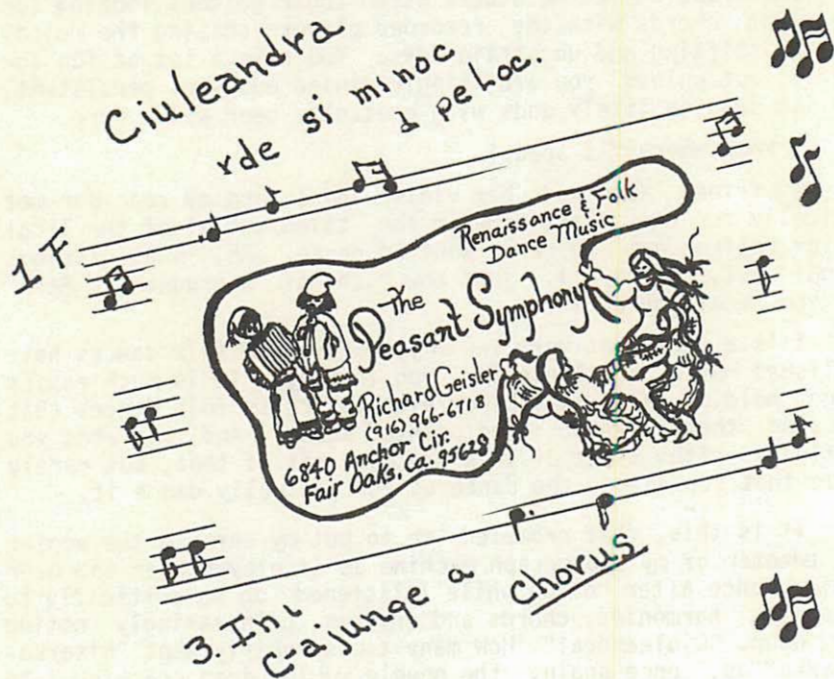 Ciuleandra
rde si minoc
pe loc.
1 F
Renaissance & Folk
Dance Music
The
Peasant Symphony
Richard Geisler
(916) 966-6718
6840 Anchor Cir.
Fair Oaks, Ca. 95628
3. Imi
C-ajunge a
Chorus